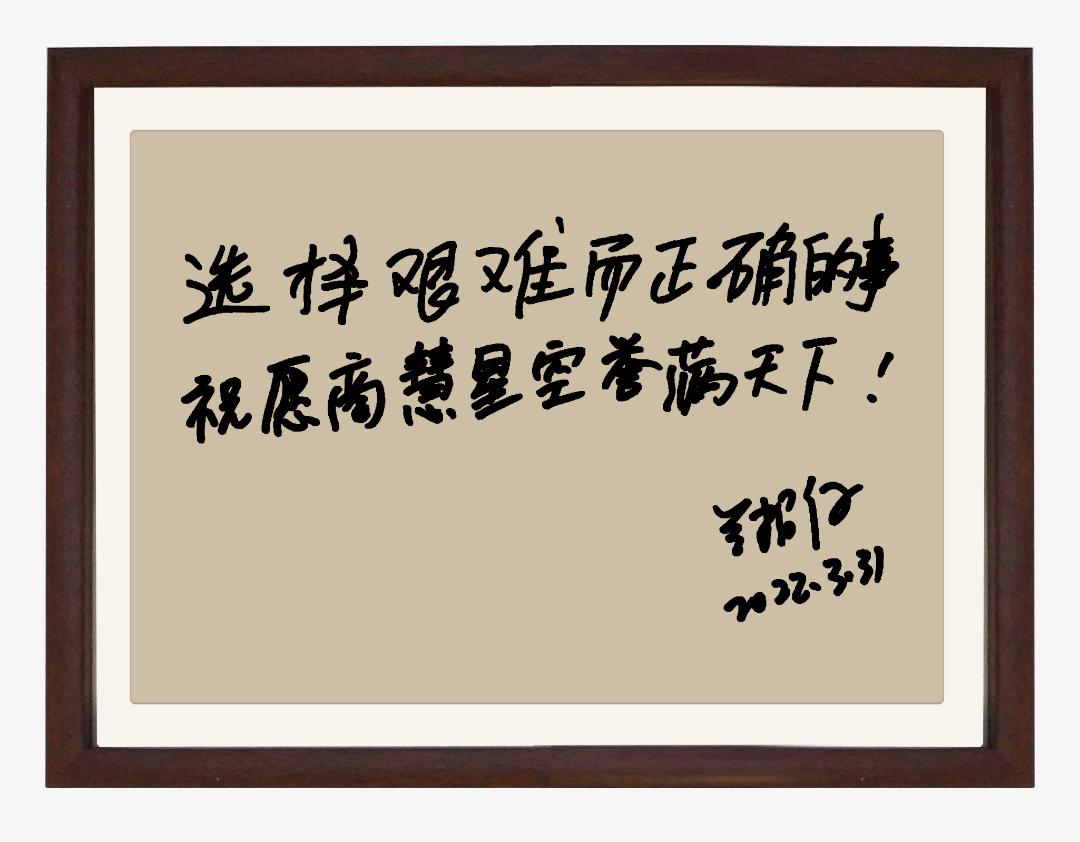 选择艰难而正确的事
祝愿商慧星空誉满天下!
2022.3.31